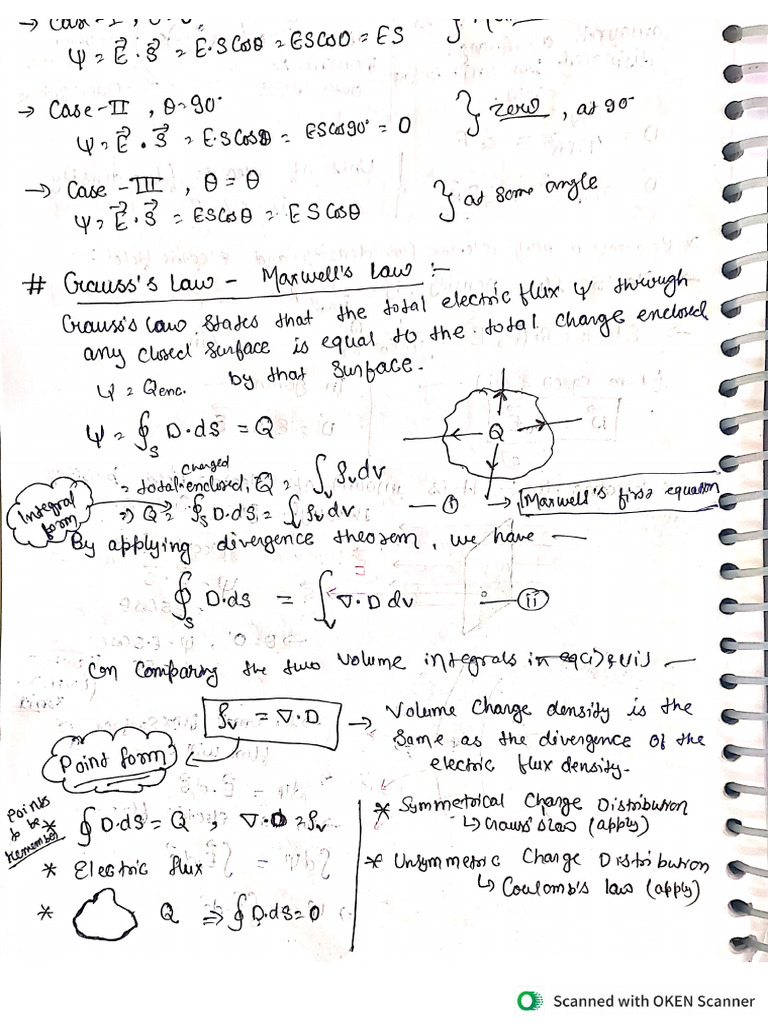 → Case-I, θ=0°
Ψ = E⃗ . S⃗ = E.S Cosθ = ES Cos0 = ES }
→ Case-II, θ=90° } zero, at 90°
Ψ = E⃗ . S⃗ = E.S Cosθ = ES Cos90° = 0
→ Case-III, θ = θ } at some angle
Ψ = E⃗ . S⃗ = ES Cosθ = ES Cosθ
# Gauss's Law - Maxwell's Law :-
Gauss's law states that the total electric flux Ψ through
any closed surface is equal to the total charge enclosed
Ψ = Qenc. by that surface.
Ψ = ∮s D.ds = Q
Q
= total charged enclosed, Q = ∫v ρv dv
Integral form
⇒ Q = ∮s D.ds = ∫v ρv dv — (i) → Maxwell's first equation
By applying divergence theorem, we have —
∮s D.ds = ∫v ∇.D dv — (ii)
On comparing the two volume integrals in eq(i) & (ii) —
ρv = ∇.D → Volume Charge density is the
same as the divergence of the
electric flux density.
Point form
Points to be remember
* ∮ D.ds = Q, ∇.D = ρv
* Electric flux
* Q ⇒ ∮ D.ds = 0
* Symmetrical Charge Distribution
↳ Gauss's law (apply)
* Unsymmetric Charge Distribution
↳ Coulomb's law (apply)
Scanned with OKEN Scanner